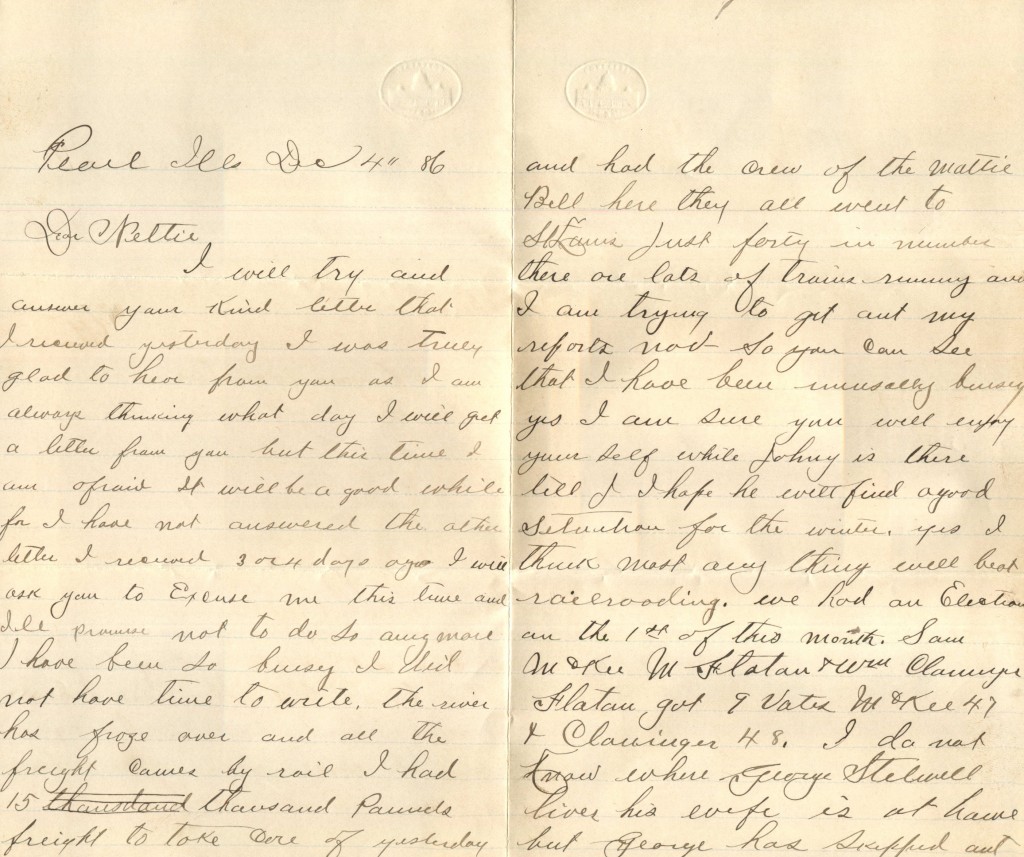 Pearl Ills Dc 4" 86
Dear Nettie
I will try and
answer your Kind letter that
I recieved yesterday I was truly
glad to hear from you as I am
always thinking what day I will get
a letter from you but this time I
am afraid it will be a good while
for I have not answered the other
letter I recieved 3 or 4 days ago I will
ask you to Excuse me this time and
Ill promise not to do so any more
I have been so buisy I did
not have time to write. the river
has froze over and all the
freight comes by rail I had
15 thousand thousand Pounds
freight to take Care of yesterday
and had the crew of the Mattie
Bell here they all went to
St Louis Just forty in number
there are lots of trains running and
I am trying to get out my
reports now so you can see
that I have been unusally buisey
yes I am sure you will enjoy
your self while Johny is there
tell J I hope he will find a good
Situation for the winter. yes I
think most any thing will beat
railroading. we had an Election
on the 1st of this month. Sam
McKee M Flatan & Wm Clawinger
Flatan got 9 Votes McKee 47
& Clawinger 48. I do not
Know where George Stelwell
lives his wife is at home
but George has skipped out